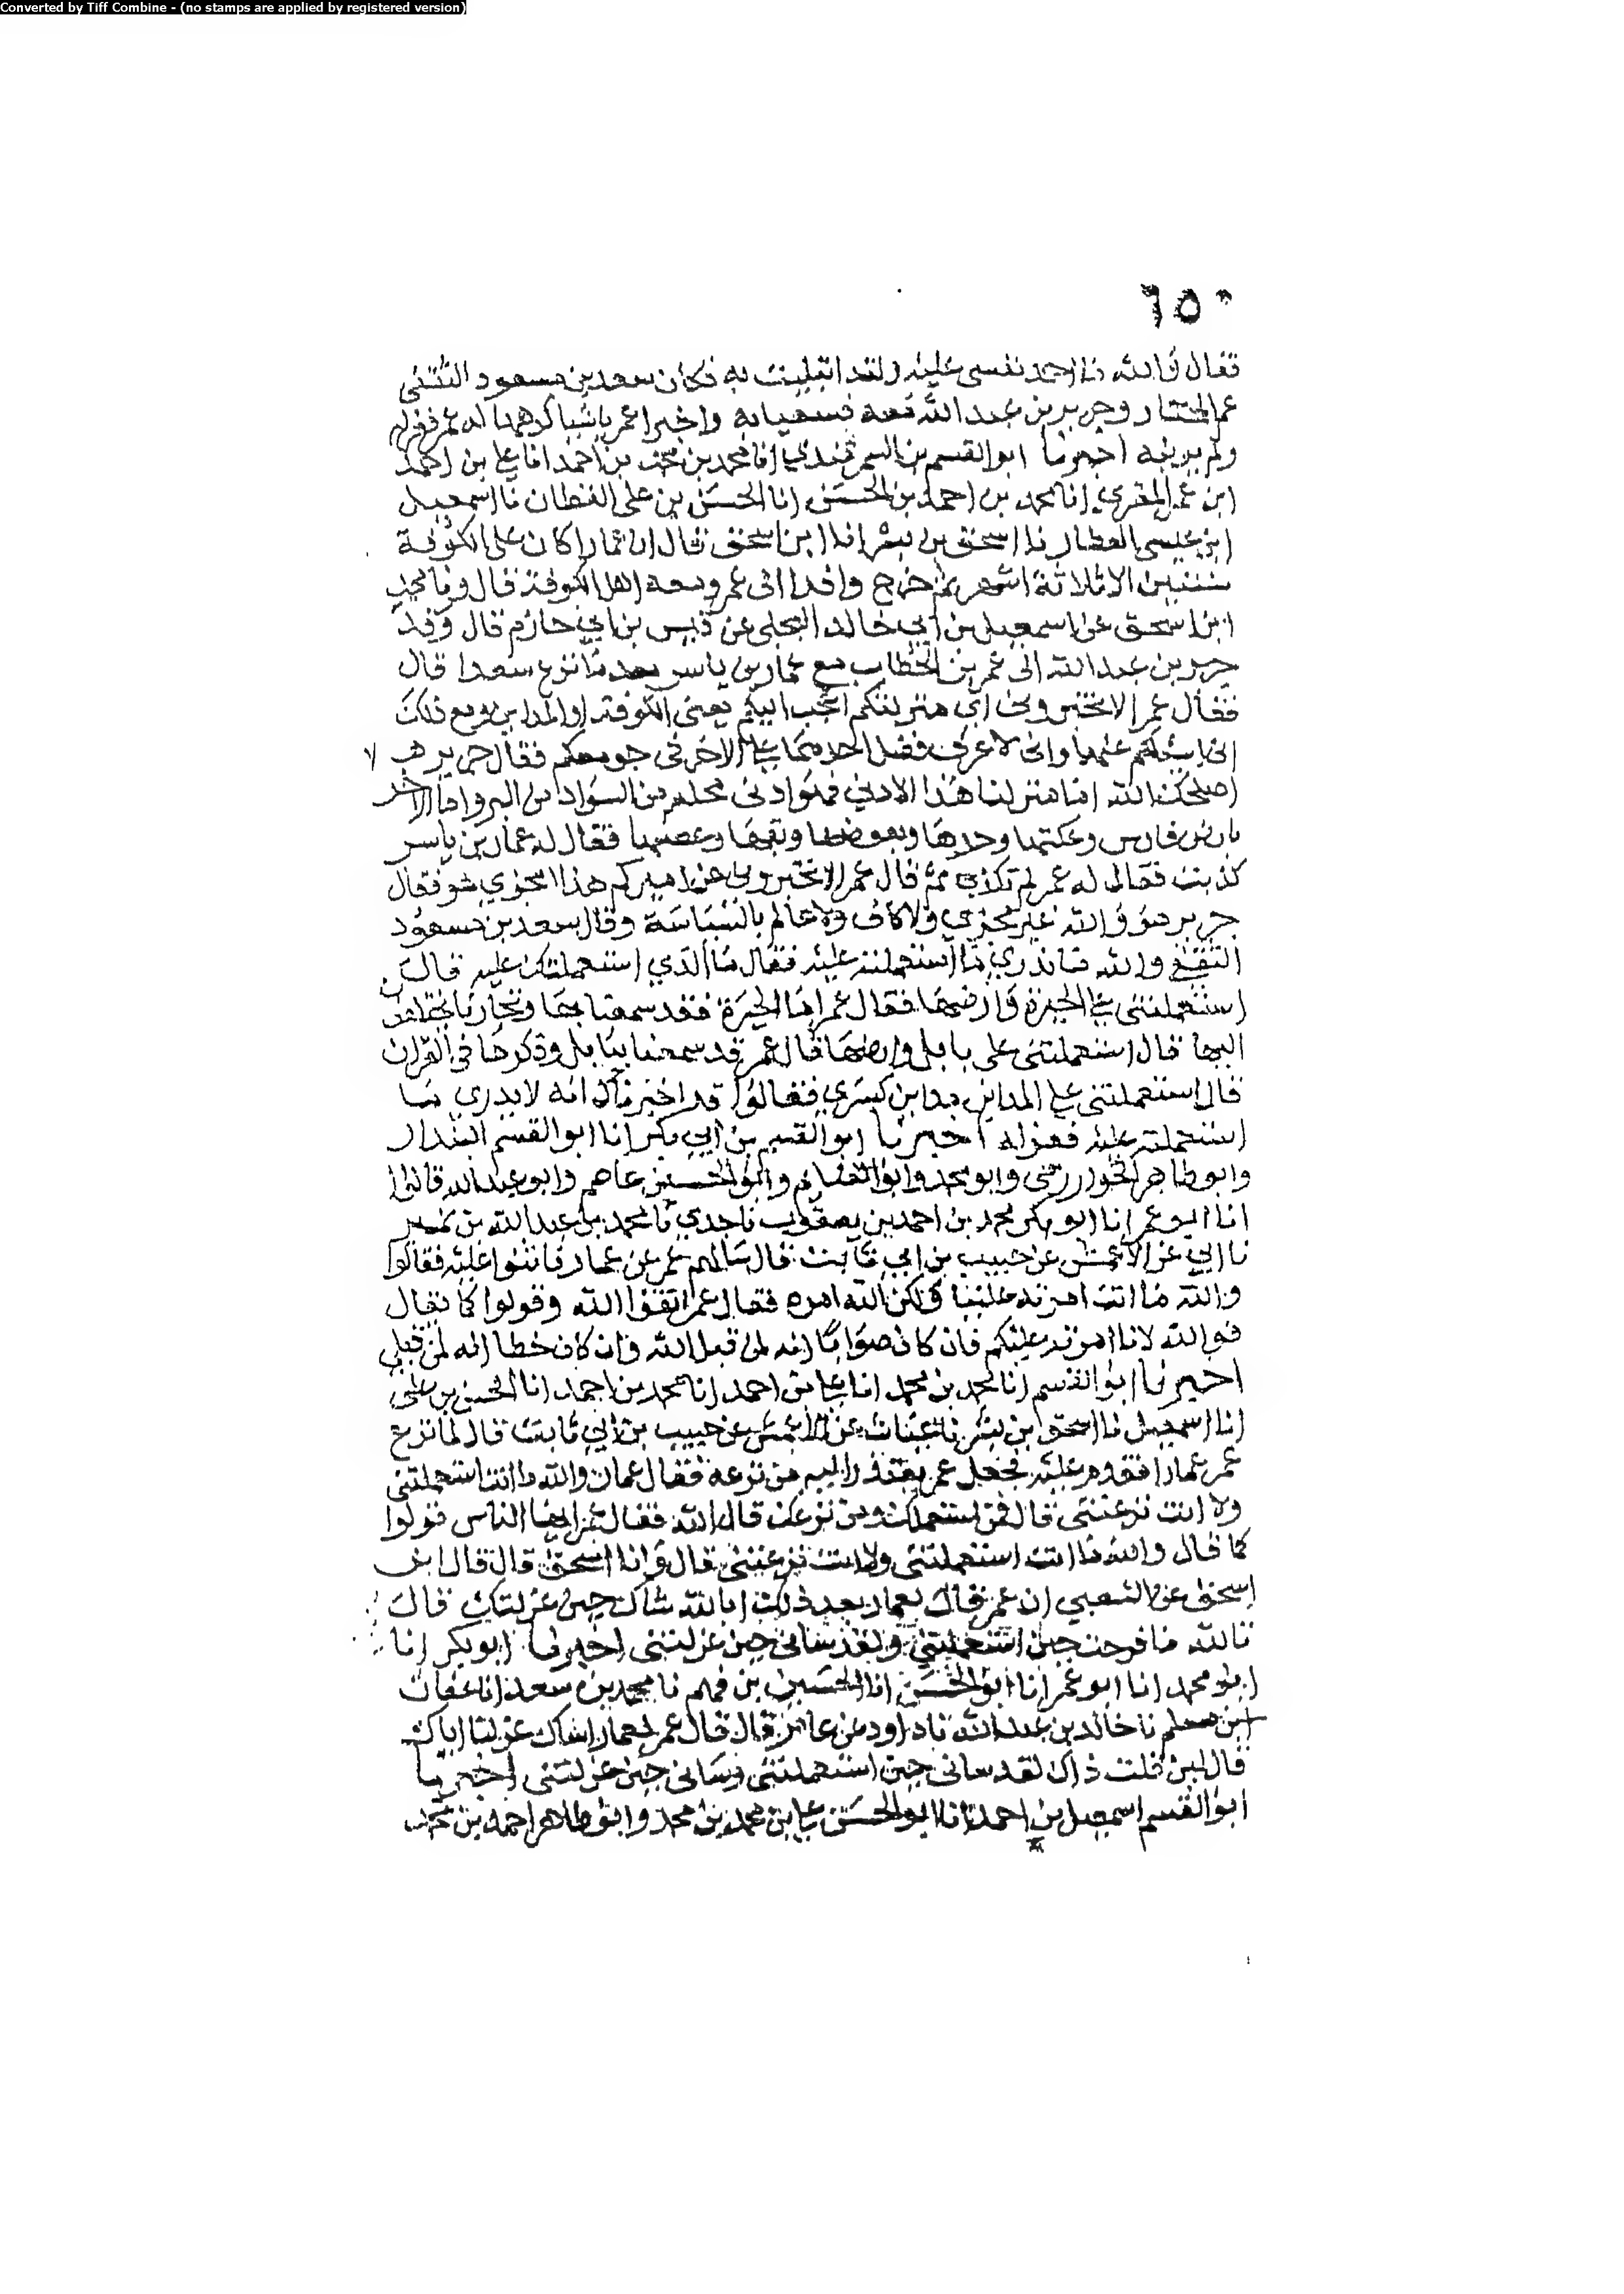 Converted by Tiff Combine - (no stamps are applied by registered version)
٦٥٠
فقال والله ما احمد نفسي عليه ولقد ابتليت به فكان سعد بن مسعود الثقفي
عم المختار وجرير بن عبد الله معه فسعيا به واخبرا عمر باشيا كرهها له عمر فعزله
ولم يوليه اخبرنا ابو القسم بن السمرقندي انا محمد بن محمد بن احمد انا علي بن احمد
ابن عمر المقري انا محمد بن احمد بن الحسن انا الحسن بن علي القطان نا اسمعيل
ابن عيسى العطار نا اسحق بن بشر انا ابن اسحق قال ان عمارا كان على الكوفة
سنتين الا ثلاثة اشهر ثم خرج وافدا الى عمر ومعه اهل الكوفة قال ونا محمد
ابن اسحق عن اسمعيل بن ابي خالد البجلي عن قيس بن ابي حازم قال وفد
جرير بن عبد الله الى عمر بن الخطاب مع عمار بن ياسر بعد ما نزع سعدا قال
فقال عمر الا تخبروني اي منزليكم اعجب اليكم يعني الكوفة او المداين مع ذلك
اني اسئلكم عنهما واني لاعرف فضل احدهما على الاخر في وجوهكم فقال جرير
اصلحك الله اما منزلنا هذا الادني فهو ادنى محله من السواد من البر واما الاخر
بارض فارس وعكتها وحرها وبعوضها وبقها فقال له عمار بن ياسر
كذبت فقال له عمر لم تكذبه ثم قال عمر الا تخبروني عن اميركم هذا امجزي هو فقال
جرير هو والله غير مجزي ولا كاف ولا عالم بالسياسة وقال سعد بن مسعود
الثقفي والله ما تدري ما استعملته عليه فقال ما الذي استعملتك عليه قال
استعملتني على الحيرة وارضها فقال عمر اما الحيرة فقد سمعنا بها وتجارنا تختلف
اليها قال استعملتني على بابل وارضها قال عمر قد سمعنا ببابل وذكرها في القران
قال استعملتني على المداين مداين كسرى فقالوا قد اخبرناك انه لا يدري ما
استعملته عليه فعزله اخبرنا ابو القسم بن ابي بكر انا ابو القسم البندار
وابو طاهر الخوارزمي وابو محمد وابو الغنايم وابو الحسين عاصم وابو عبد الله قالوا
انا ابو عمر انا ابو بكر محمد بن احمد بن يعقوب نا جدي نا محمد بن عبد الله بن نمير
نا ابي عن الاعمش عن حبيب بن ابي ثابت قال سالهم عمر عن عمار فاثنوا عليه فقالوا
والله ما انت امرته علينا ولكن الله امره فقال عمر اتقوا الله وقولوا كما يقال
فو الله لانا امرته عليكم فان كان صوابا انه لمن قبل الله وان كان خطا انه لمن قبلي
اخبرنا ابو القسم انا محمد بن محمد انا علي بن احمد انا محمد بن احمد انا الحسن بن علي
انا اسمعيل نا اسحق بن بشر نا عن الاعمش عن حبيب بن ابي ثابت قال لما نزع
عمر عمارا فقدم عليه فجعل عمر يعتذر اليه من نزعه فقال عمار والله ما انت استعملتني
ولا انت نزعتني قال فمن استعملك ومن نزعك قال الله فقال عمر ايها الناس قولوا
كما قال والله ما انت استعملتني ولا انت نزعتني قال وانا اسحق قال قال ابن
اسحق عن الشعبي ان عمر قال لعمار بعد ذلك ابالله ساك حين عزلتك قال
تالله ما فرحت حين استعملتني ولقد ساني حين عزلتني اخبرنا ابو بكر انا
ابو محمد انا ابو عمر انا ابو الحسن انا الحسين بن فهم نا محمد بن سعد انا عفان
ابن مسلم نا خالد بن عبد الله نا داود عن عامر قال قال عمر لعمار اساك عزلنا اياك
قال لين قلت ذاك لقد ساني حين استعملتني وساني حين عزلتني اخبرنا
ابو القسم اسمعيل بن احمد انا ابو الحسن علي بن محمد بن محمد وابو طاهر احمد بن محمد